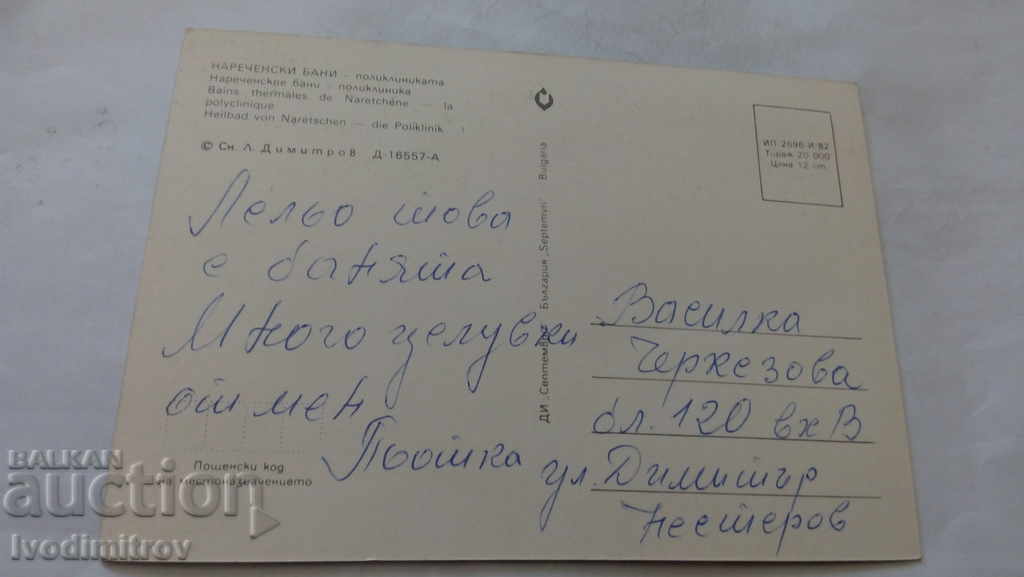 НАРЕЧЕНСКИ БАНИ - поликлиниката
Нареченские бани - поликлиника
Bains thermales de Naretchène — la
polyclinique
Heilbad von Naretschen — die Poliklinik
© Сн. Л. Димитров Д-16557-А
Лельо това
е банята
Много целувки
от мен
Пошка
Пощенски код
на местоназначението
ДИ „Септември" България „Septemvri" Bulgaria
ИП 2696-И-82
Тираж 20 000
Цена 12 ст.
Василка
Черкезова
бл. 120 вх В
ул. Димитър
Нестеров
BALKAN
auction
Ivodimitrov